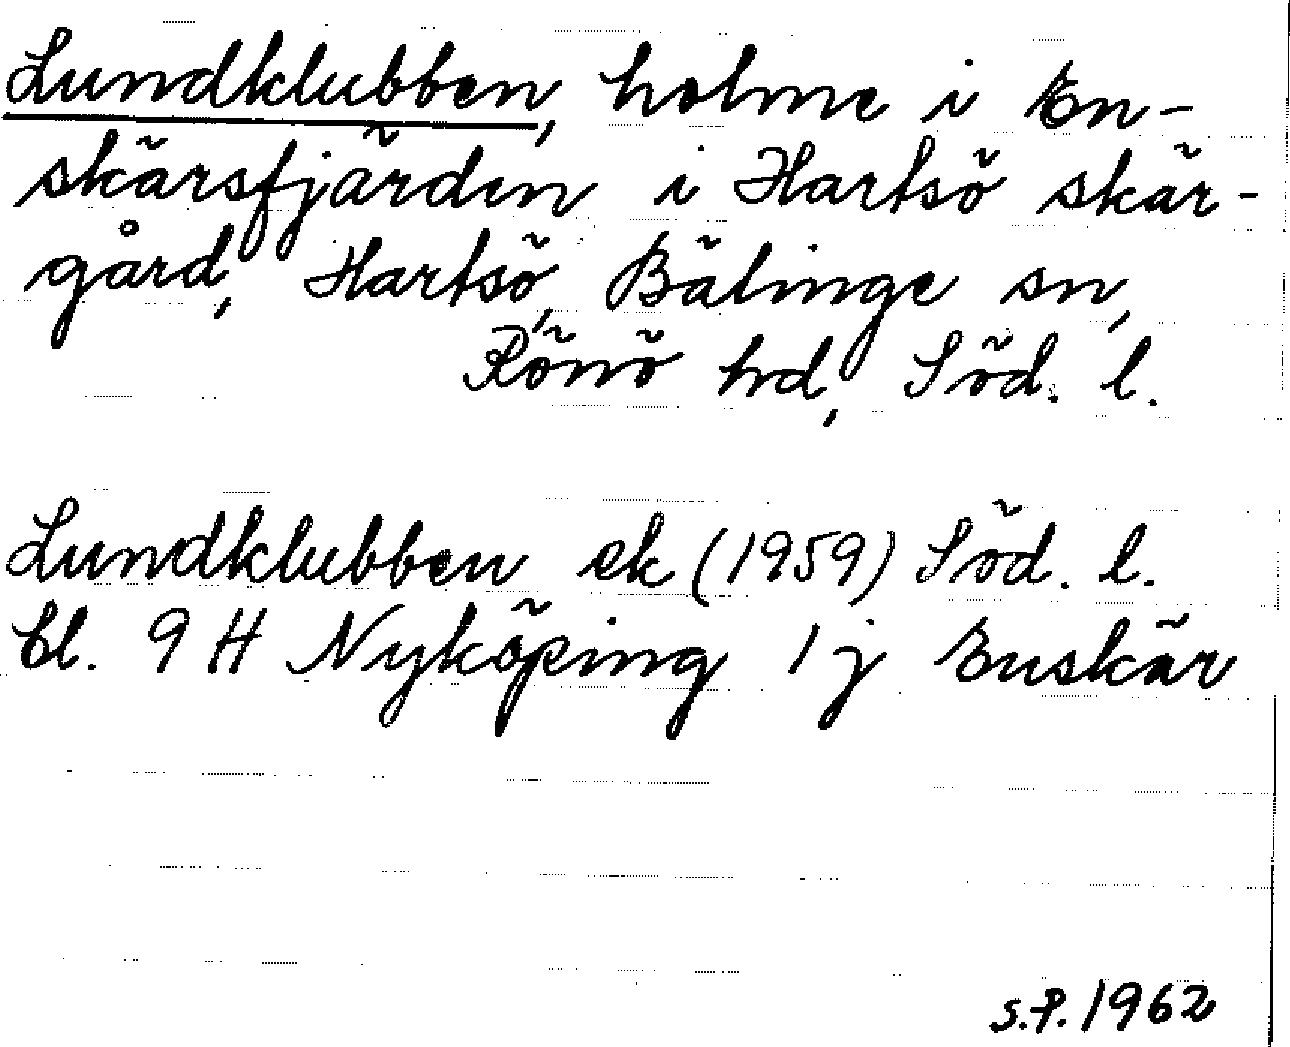 Lundklubben, holme i En-
skärsfjärden i Hartsö skär-
gård, Hartsö, Bälinge sn,
Rönö hd, Söd. l.
Lundklubben ek (1959) Söd. l.
bl. 9 H Nyköping 1 j Enskär
S.P. 1962